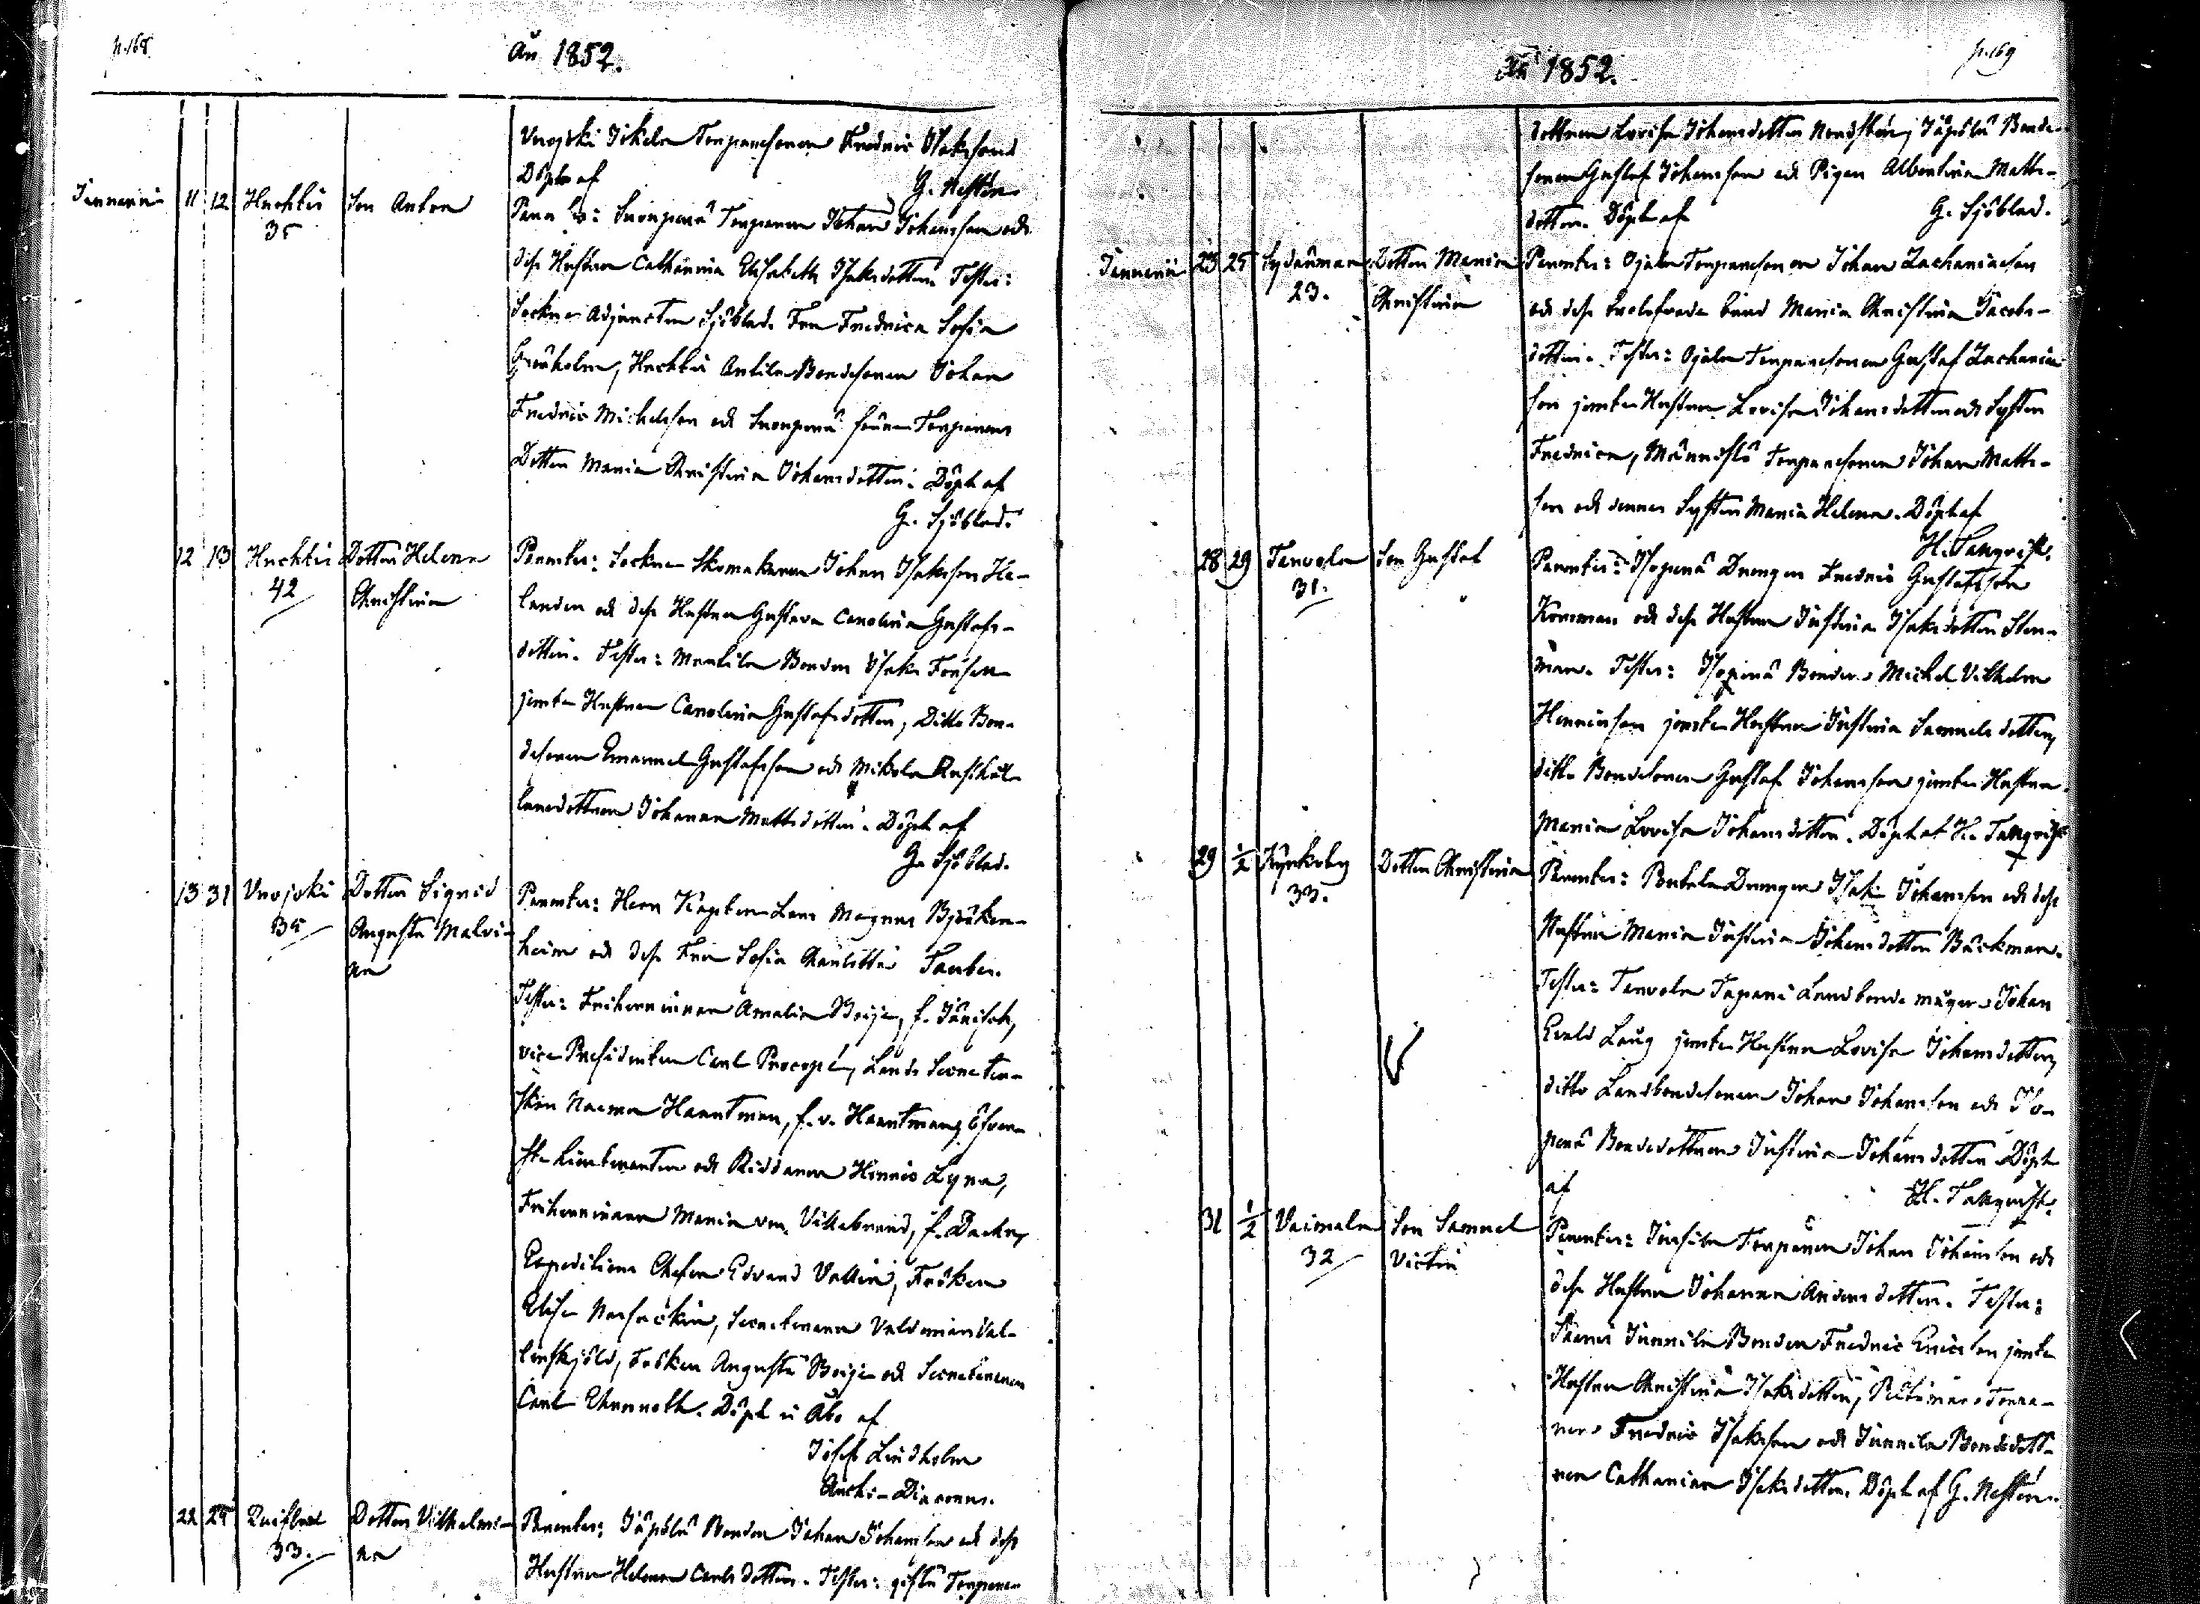 p. 168
År 1852.
Vuojoki Torparesonen Fredric Isaksson
Döpt af G. Nestén
Januarii 11 12 Huchtis Son Anton
35
Torparen Johan Johansson och
dess Hustru Catharina Elisabeth Isaksdotter. Testes:
Sockne Adjuncten Sjöblad, Fru Fredrica Sofia
Grönholm, Huchtis Anttila Bondesonen Johan
Fredric Michelsson och Torparens
Dotter Maria Christina Johansdotter. Döpt af
G. Sjöblad.
12 13 Huchtis Dotter Helena Parentes: Sockne Skomakaren Johan Isaksson He-
42 Christina lander och dess Hustru Gustava Carolina Gustafs-
dotter. Testes: Markila Bonden Isak
jemte Hustrun Carolina Gustafsdotter, Ditto Bon-
desonen Emanuel Gustafsson och Mikola Rusthål-
laredottren Johanna Mattsdotter. Döpt af
G. Sjöblad.
13 31 Vuojoki Dotter Sigrid Parentes: Herr Kapiten Lars Magnus Björken-
35 Augusta Malvi- heim och dess Fru Sofia Charlotta Tauber.
na
Testes: Friherrinnan Amalia Boije, f. Jänisch,
vice Presidenten Carl Procopé, Lands Secreter-
skan Naema Haartman, f. v. Haartman, Öfver-
ste Lieutenanten och Riddaren Henric Lyra,
Friherrinnan Maria von Villebrand, f.
Expeditions Chefen Edvard Vallin, Fröken
Elise Secreteraren Valdemar Val-
lensköld, Fröken Augusta Boije och Secreteraren
Carl Ehrnrooth. Döpt i Åbo af
Josef Lindholm
Archi-Diaconus.
22 25 Dotter Vilhelmi- Parentes: Jäpölä Bonden Johan Johansson och dess
33. na Hustru Helena Carlsdotter. Testes: Torpare-
År 1852.
p. 169
dottren Lovisa Johansdotter Nordstén, Jäpölä Bonde-
sonen Gustaf Johansson och Pigan Albertina Matts-
dotter. Döpt af G. Sjöblad.
Januarii 23 25 Sydänmaa Dotter Maria Parentes: Ojala Torparesonen Johan Zachariasson
23. Christina och dess trolofvade brud Maria Christina Jacobs-
dotter. Testes: Ojala Torparesonen Gustaf Zacharias-
son jemte Hustrun Lovisa Johansdotter och Syster
Fredrica, Männistö Torparesonen Johan Matts-
son och dennes Syster Maria Helena. Döpt af
H. Tanqvist.
28 29 Tarvola Son Gustaf Parentes: Isoperä Drengen Fredric Gustafsson
31. Korsman och dess Hustru Justina Isaksdotter Sten-
man. Testes: Isoperä Bonden Michel Vilhelm
Henricsson jemte Hustrun Justina Samuelsdotter,
ditto Bondesonen Gustaf Johansson jemte Hustrun
Maria Lovisa Johansdotter. Döpt af H. Tanqvist
29 1/2 Dotter Christina Parentes: Drengen Isak Johansson och dess
33. Hustru Maria Justina Johansdotter Bäckman.
Testes: Tarvola Tapani Landbonde mågen Johan
Evald Laug jemte Hustrun Lovisa Johansdotter,
ditto Landbondesonen Johan Johansson och Iso-
perä Bondedottren Justina Johansdotter Döpt
af H. Tanqvist.
31 1/2 Vaimala Son Samuel Parentes: Torparen Johan Johansson och
32 Victor dess Hustru Johanna Andersdotter. Testes:
Junnila Bonden Fredric Ericsson jemte
Hustrun Christina Isaksdotter, Torpa-
ren Fredric Isaksson och Junnila Bondedott-
ren Catharina Isaksdotter. Döpt af G. Nestén.